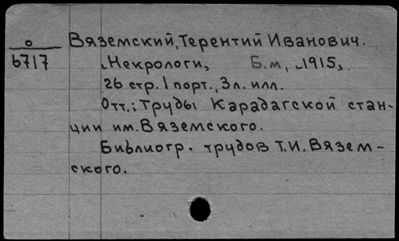 о Вяземский, Терентий Иванович.
б717 „Некрологи„ Б.м, „1915„.
26 стр. 1 порт., 3 л. илл.
Отт.: Труды Карадагской стан-
ции им. Вяземского.
Библиогр. трудов Т.И. Вязем-
ского.